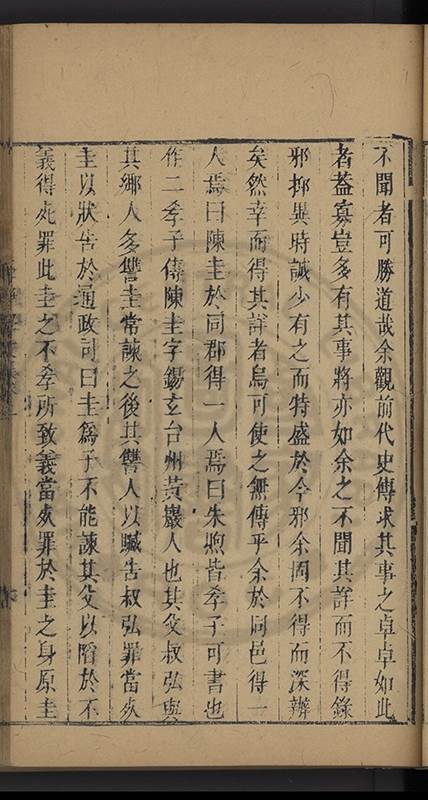 不聞者可勝道哉余觀前代史傳求其事之卓卓如此
者葢寡豈多有其事將亦如余之不聞其詳而不得錄
邪抑異時誠少有之而特盛於今邪余固不得而深辨
矣然幸而得其詳者烏可使之無傳乎余於同邑得一
人焉曰陳圭於同郡得一人焉曰朱煦皆孝子可書也
作二孝子傳陳圭字錫玄台州黃巖人也其父叔弘與
其鄉人多讐圭常諫之後其讐人以贓告叔弘罪當死
圭以狀告於通政司曰圭爲子不能諫其父以陷於不
義得死罪此圭之不孝所致義當死罪於圭之身原圭